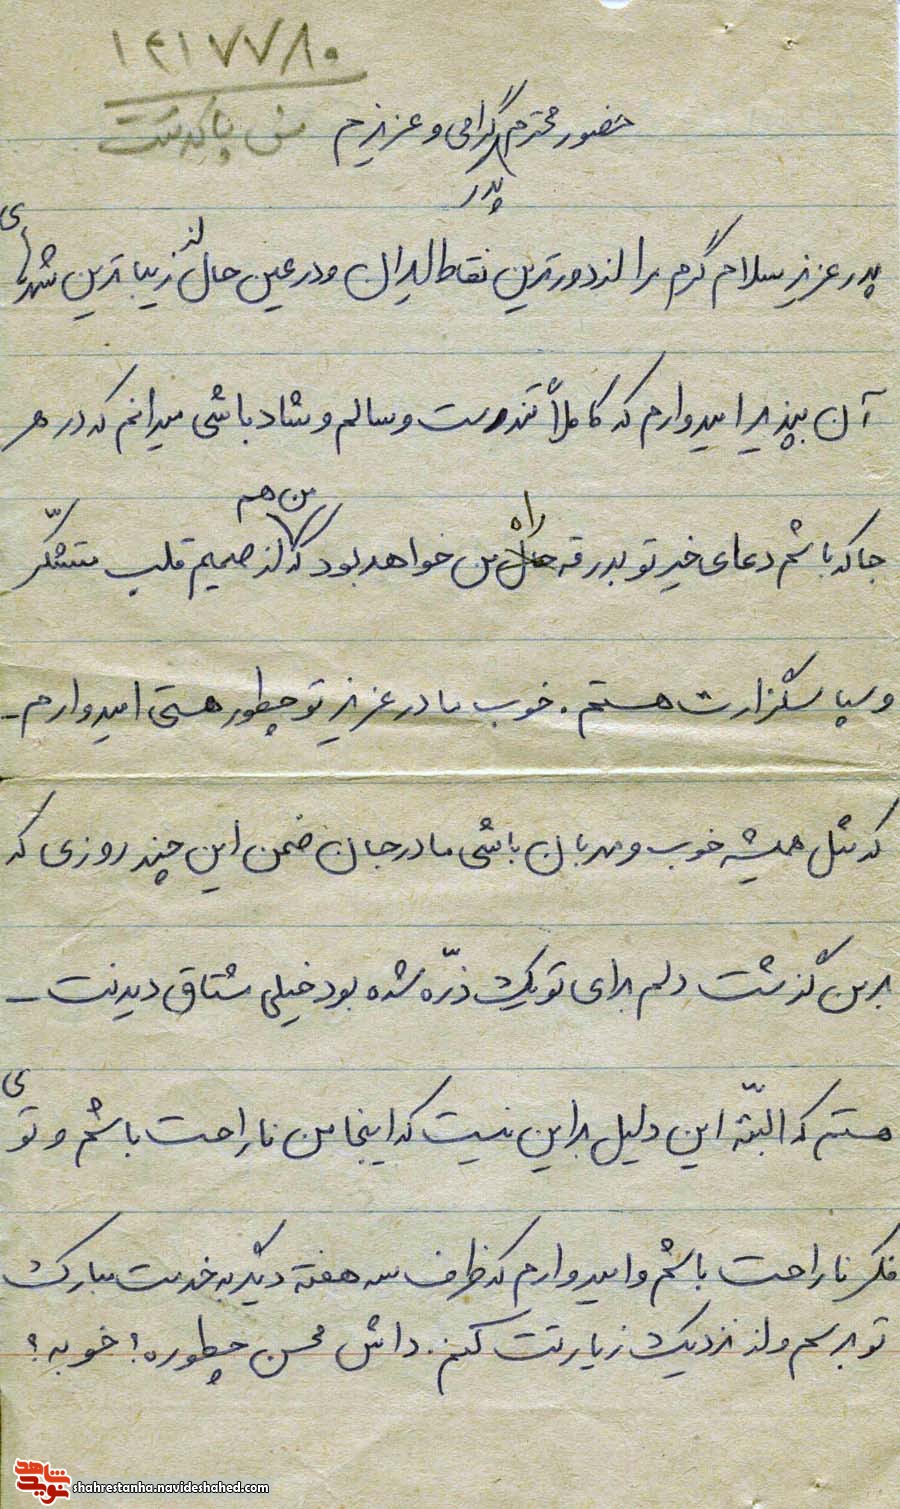 ۱۲۱۷۷۸۰
ش پاکدشت
حضور محترم پدر گرامی و عزیزم
پدر عزیز سلام گرم مرا از دورترین نقاط ایران و در عین حال از زیباترین شهرهای
آن بپذیر امیدوارم که کاملاً تندرست و سالم و شاد باشی میدانم که در هر
جا که باشم دعای خیر تو بدرقه راه من خواهد بود که من هم از صمیم قلب متشکّر
و سپاسگزارت هستم. خوب مادر عزیز تو چطور هستی امیدوارم -
که مثل همیشه خوب و مهربان باشی مادر جان ضمن این چند روزی که
بر من گذشت دلم برای تو یک ذرّه شده بود خیلی مشتاق دیدنت -
هستم که البتّه این دلیل بر این نیست که اینجا من ناراحت باشم و توی
فکر ناراحت باشم و امیدوارم که ظرف سه هفته دیگر به خدمت مبارک
تو برسم و از نزدیک زیارتت کنم. داش محسن چطوره؟ خوبه؟
شاهد نوید
shahrestanha.navideshahed.com